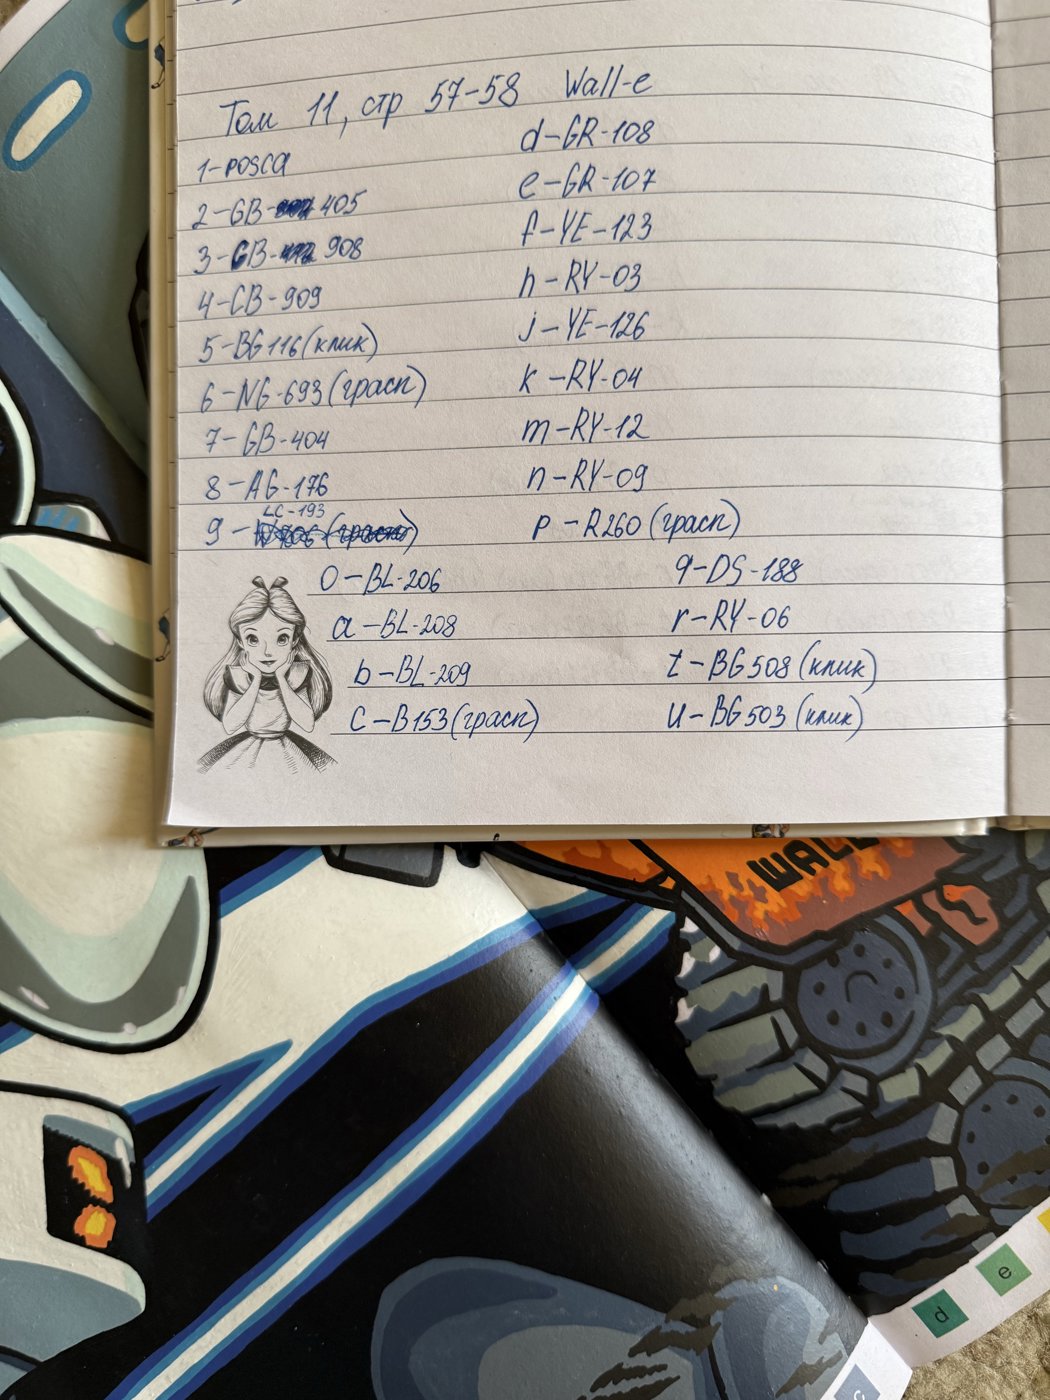 Том 11, стр 57-58 Wall-e
1-posca
2-GB-405
3-GB-908
4-CB-909
5-BG116(клик)
6-NG-693(грасп)
7-GB-404
8-AG-176
9-LC-193
d-GR-108
e-GR-107
f-YE-123
h-RY-03
j-YE-126
k-RY-04
m-RY-12
n-RY-09
p-R260(грасп)
0-BL-206
a-BL-208
b-BL-209
c-B153(грасп)
q-DS-188
r-RY-06
t-BG508(клик)
u-BG503(клик)
WALL
e
d
c